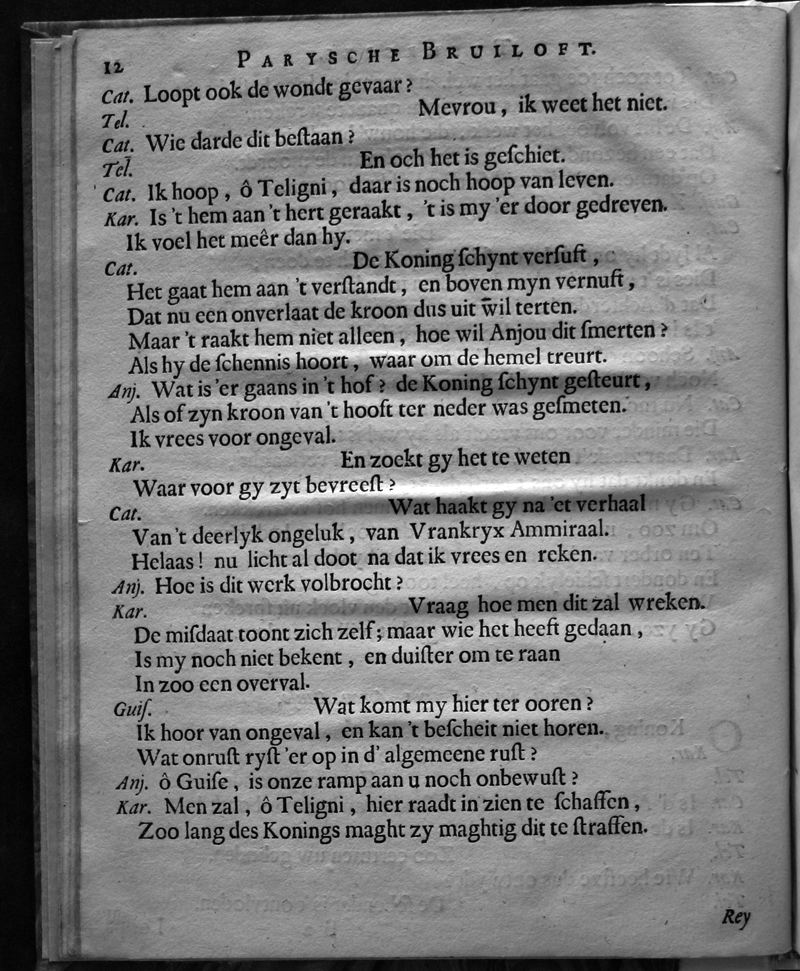 12 PARYSCHE BRUILOFT.
Cat. Loopt ook de wondt gevaar?
Tel. Mevrou, ik weet het niet.
Cat. Wie darde dit beſtaan?
Tel. En och het is geſchiet.
Cat. Ik hoop, ô Teligni, daar is noch hoop van leven.
Kar. Is 't hem aan 't hert geraakt, 't is my 'er door gedreven.
Ik voel het meêr dan hy.
Cat. De Koning ſchynt verſuft,
Het gaat hem aan 't verſtandt, en boven myn vernuft,
Dat nu een onverlaat de kroon dus uit wil terten.
Maar 't raakt hem niet alleen, hoe wil Anjou dit ſmerten?
Als hy de ſchennis hoort, waar om de hemel treurt.
Anj. Wat is 'er gaans in 't hof? de Koning ſchynt geſteurt,
Als of zyn kroon van 't hooft ter neder was geſmeten.
Ik vrees voor ongeval.
Kar. En zoekt gy het te weten
Waar voor gy zyt bevreeſt?
Cat. Wat haakt gy na 'et verhaal
Van 't deerlyk ongeluk, van Vrankryx Ammiraal.
Helaas! nu licht al doot na dat ik vrees en reken.
Anj. Hoe is dit werk volbrocht?
Kar. Vraag hoe men dit zal wreken.
De miſdaat toont zich zelf; maar wie het heeft gedaan,
Is my noch niet bekent, en duiſter om te raan
In zoo een overval.
Guiſ. Wat komt my hier ter ooren?
Ik hoor van ongeval, en kan 't beſcheit niet horen.
Wat onruſt ryſt 'er op in d' algemeene ruſt?
Anj. ô Guiſe, is onze ramp aan u noch onbewuſt?
Kar. Men zal, ô Teligni, hier raadt in zien te ſchaffen,
Zoo lang des Konings maght zy maghtig dit te ſtraffen.
Rey